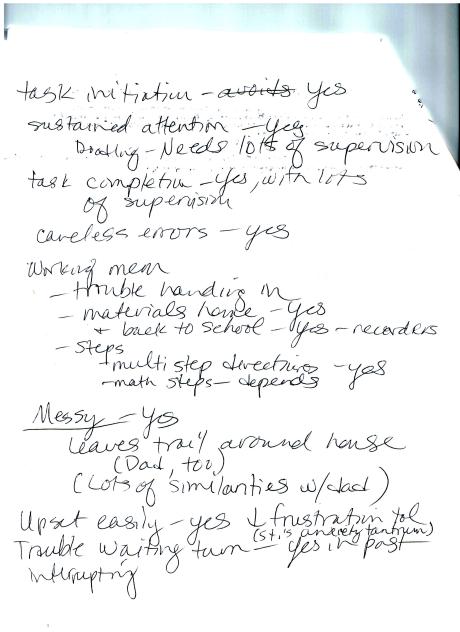 task initiation - avoids yes
sustained attention - yes
- Needs lots of supervision
task completion - yes, with lots
of supervision
careless errors - yes
Working mem
- trouble handing in
- materials home - yes
+ back to school - yes - recorders
- steps
- multi step directions - yes
- math steps - depends
Messy - yes
leaves trail around house
(Dad, too)
(Lots of similarities w/dad)
Upset easily - yes ↓ frustration tol
(sts anxiety tantrum)
Trouble waiting turn - yes in past
interrupting